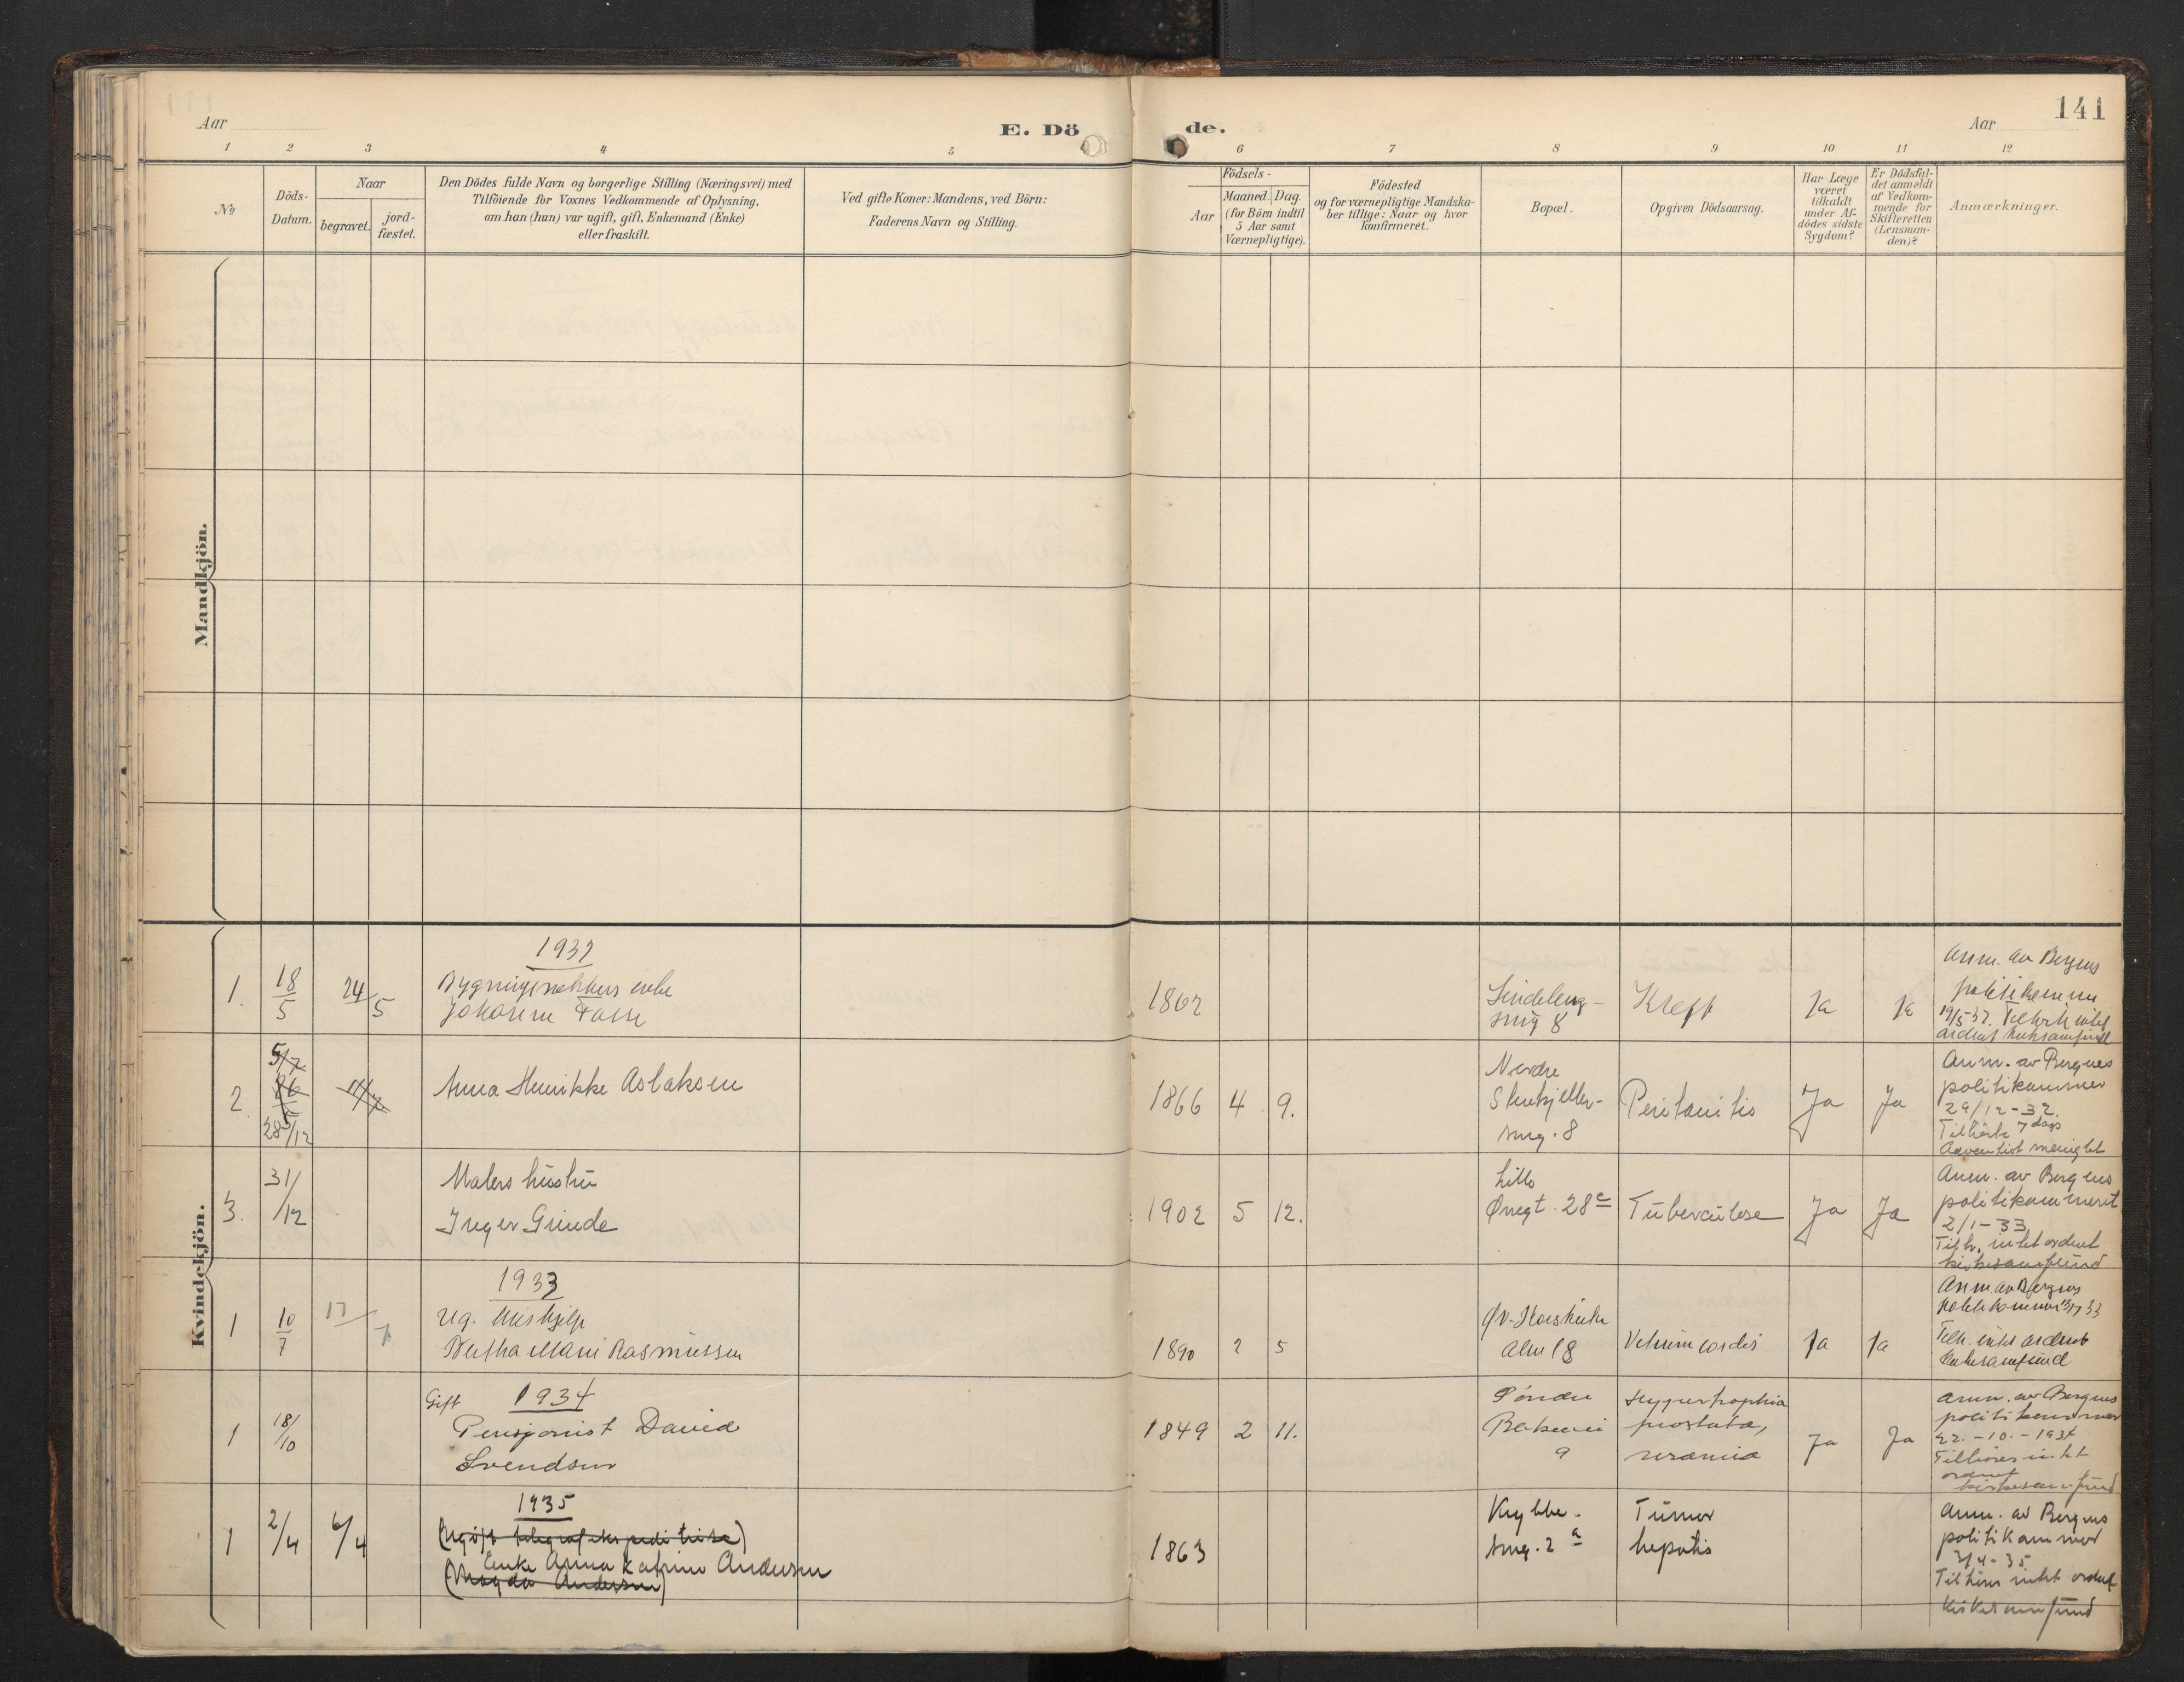 141
Aar
E. Dö
de.
Aar
1 2 3 4 5 6 7 8 9 10 11 12
No
Döds-
Datum.
Naar
begravet.
jord-
fæstet.
Den Dödes fulde Navn og borgerlige Stilling (Næringsvei) med
Tilföiende for Voxnes Vedkommende af Oplysning,
om han (hun) var ugift, gift, Enkemand (Enke)
eller fraskilt.
Ved gifte Koner: Mandens, ved Börn:
Faderens Navn og Stilling.
Födsels-
Aar
Maaned.
Dag.
(for Börn indtil
5 Aar samt
Værnepligtige).
Födested
og for værnepligtige Mandska-
ber tillige: Naar og hvor
konfirmeret.
Bopæl.
Opgiven Dödsaarsag.
Har Læge
været
tilkaldt
under Af-
dödes sidste
Sygdom?
Er Dödsfal-
det anmeldt
af Vedkom-
mende for
Skifteretten
(Lensman-
den)?
Anmærkninger.
Mandkjön.
Kvindekjön.
1932
1. 18/5 24/5
enke
1862
8
Kreft
Ja
Ja
Anm. av Bergens
19/5-32.
2. 5/7 28/12 11/7
Anna Henrikke Aslaksen
1866 4 9.
Nordre
Stenkjeller-
smg. 8
Peritonitis
Ja
Ja
Anm. av Bergens
politikammer
29/12-32.
Tilhørte 7 dags
Adventist menighet
3. 31/12
Malers hustru
Inger Grinde
1902 5 12.
Lille
Øvregt. 28c
Tuberculose
Ja
Ja
Anm. av Bergens
politikammeret
2/1-33
Tilh. intet ordent
kirkesamfund
1933
1 10/7 17/7
Ug. Hushjelp
Bertha Marie Rasmussen
1890 2 5
alm 18
Vitium cordis
Ja
Ja
Anm. av Bergens
Tilh. intet ordent
kirkesamfund
Gift 1934
1 18/10
Pensjonist David
Svendsen
1849 2 11.
Søndre
9
Hypertrophia
prostata,
uræmia
Ja
Ja
Anm. av Bergens
politikammer
22.-10.-1934
Tilhøres intet
ordnet
kirkesamfund
1935
1 2/4 6/4
(Ugift telegrafekspeditrise)
Enke Anna Katrine Andersen
(Magda Andersen)
1863
Krybbe-
smg. 2a
Tumor
hepatis
Anm. av Bergens
politikammer
3/4-35
Tilhører intet ordnet
kirkesamfund